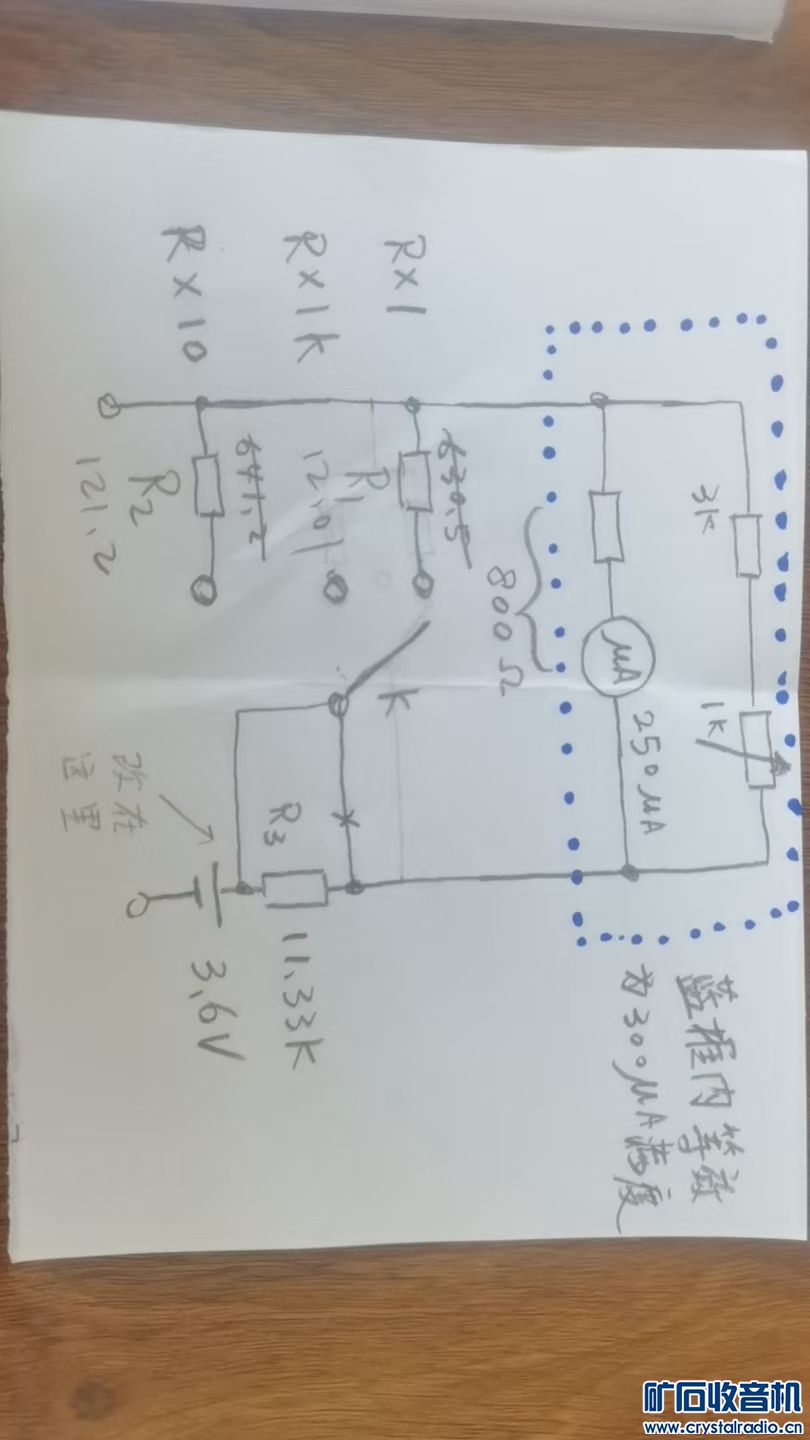 3K
1K
蓝框内等效
为300μA满度
μA
250μA
800Ω
R×1
630.5
R1
12.01
K
R×1K
R3
11.33K
641.2
R×10
R2
121.2
3.6V
改在
这里
矿石收音机
www.crystalradio.cn